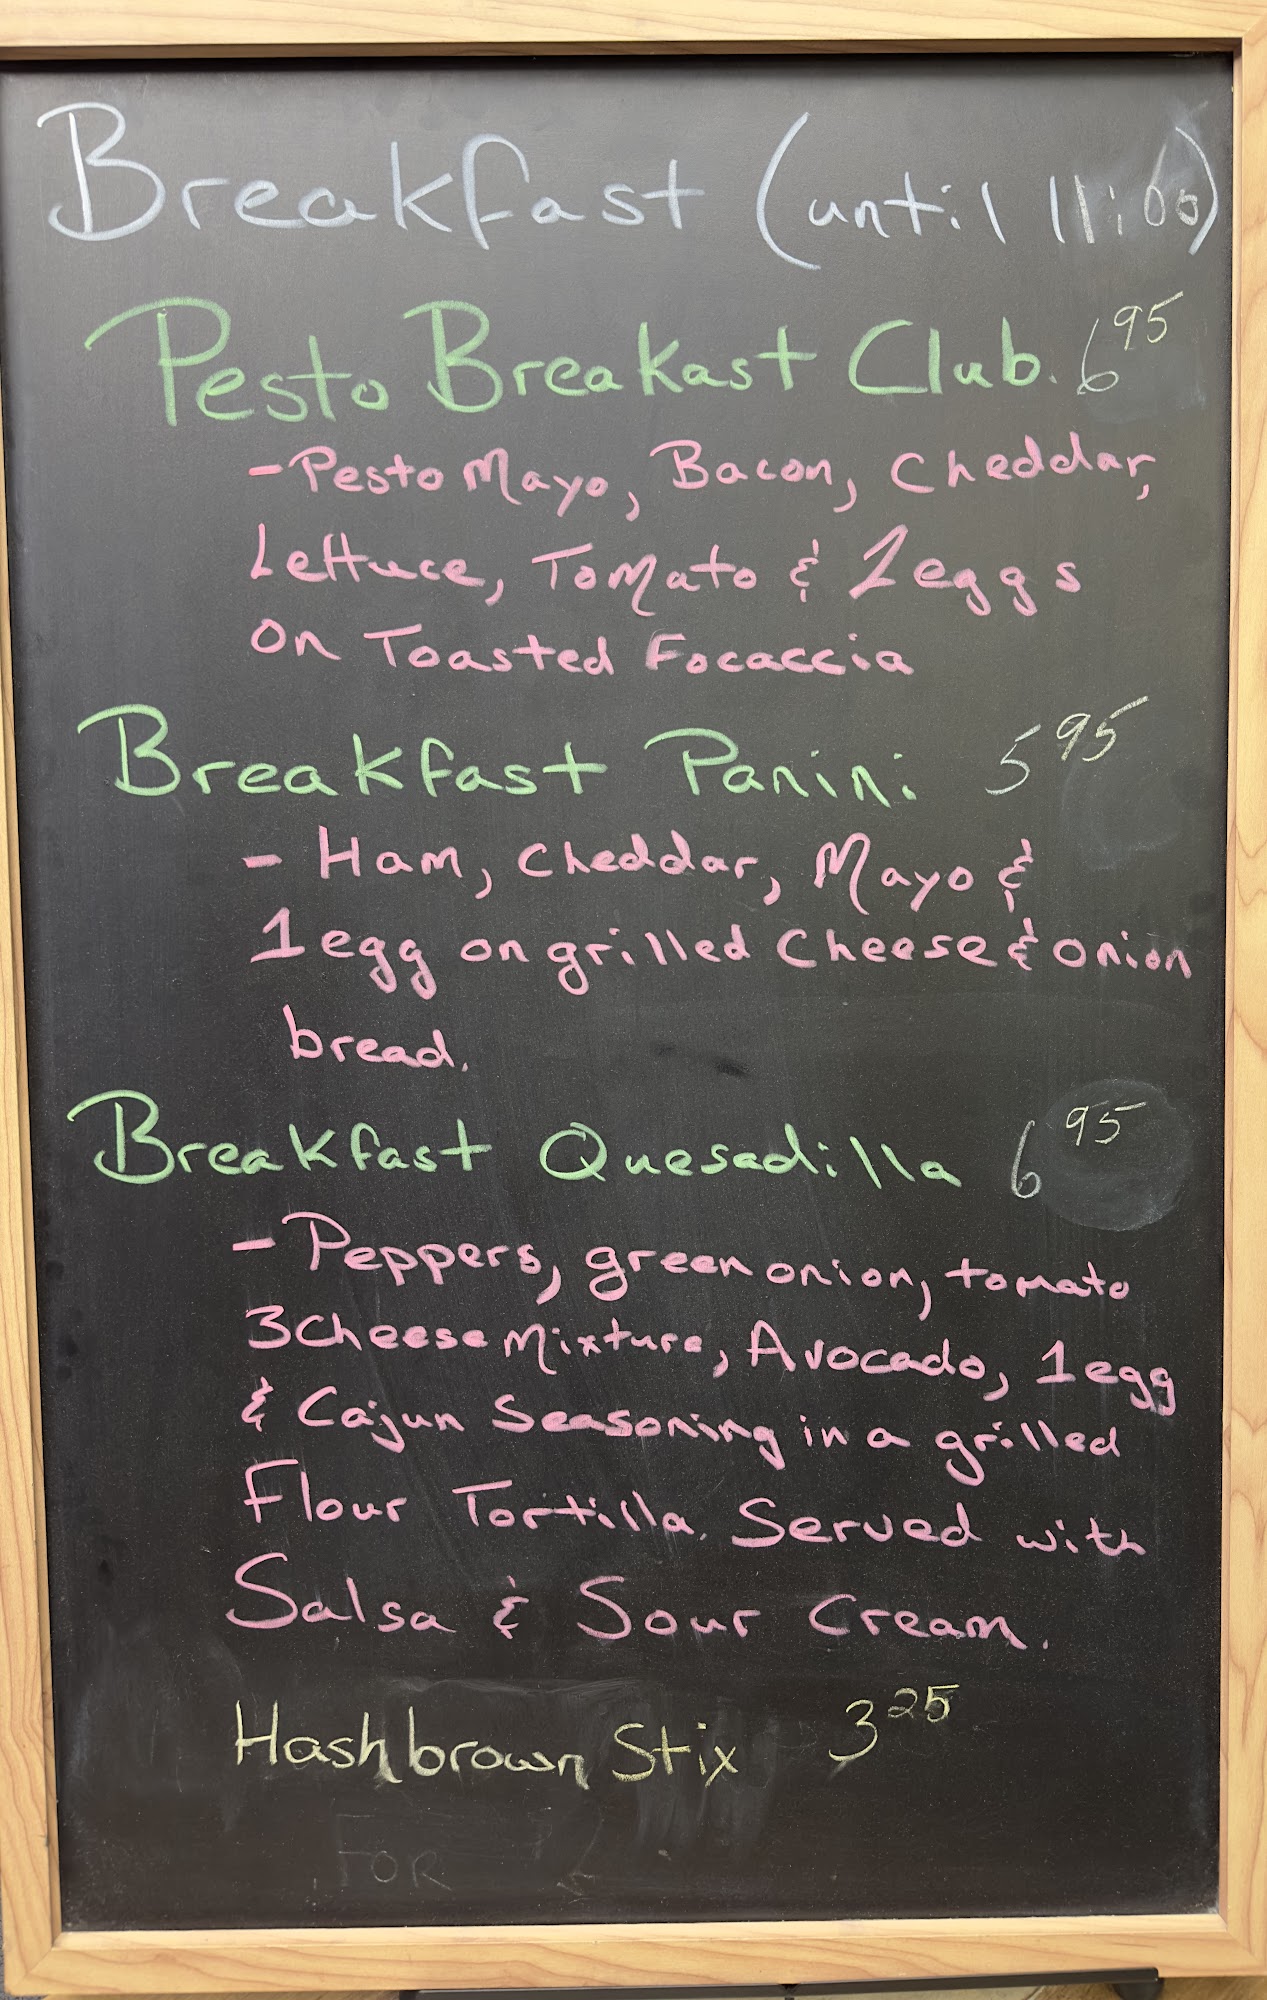 Breakfast (until 11:00)
Pesto Breakast Club. 6 95
- Pesto Mayo, Bacon, Cheddar,
Lettuce, Tomato & 2 eggs
on Toasted Focaccia
Breakfast Panini 5 95
- Ham, Cheddar, Mayo &
1 egg on grilled Cheese & onion
bread.
Breakfast Quesadilla 6 95
- Peppers, green onion, tomato
3 Cheese Mixture, Avocado, 1 egg
& Cajun Seasoning in a grilled
Flour Tortilla. Served with
Salsa & Sour Cream.
Hashbrown Stix 3 25
FOR